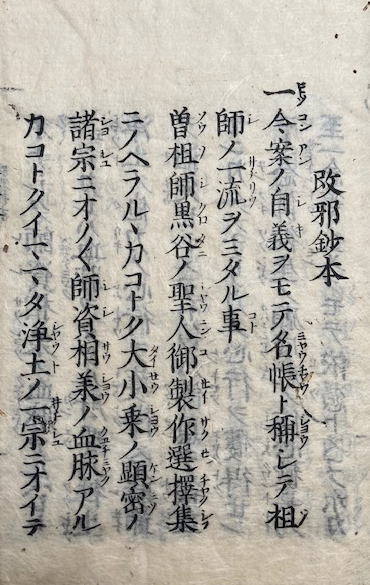 改邪鈔本
一今案ノ自義ヲモテ名帳ト稱シテ祖
師ノ一流ヲミタル事
曽祖師黒谷ノ聖人御製作選擇集
ニノヘラルヽカコトク大小乗ノ顕密ノ
諸宗ニオノ〱師資相兼ノ血脉アル
カコトクイマヽタ浄土ノ一宗ニオイテ